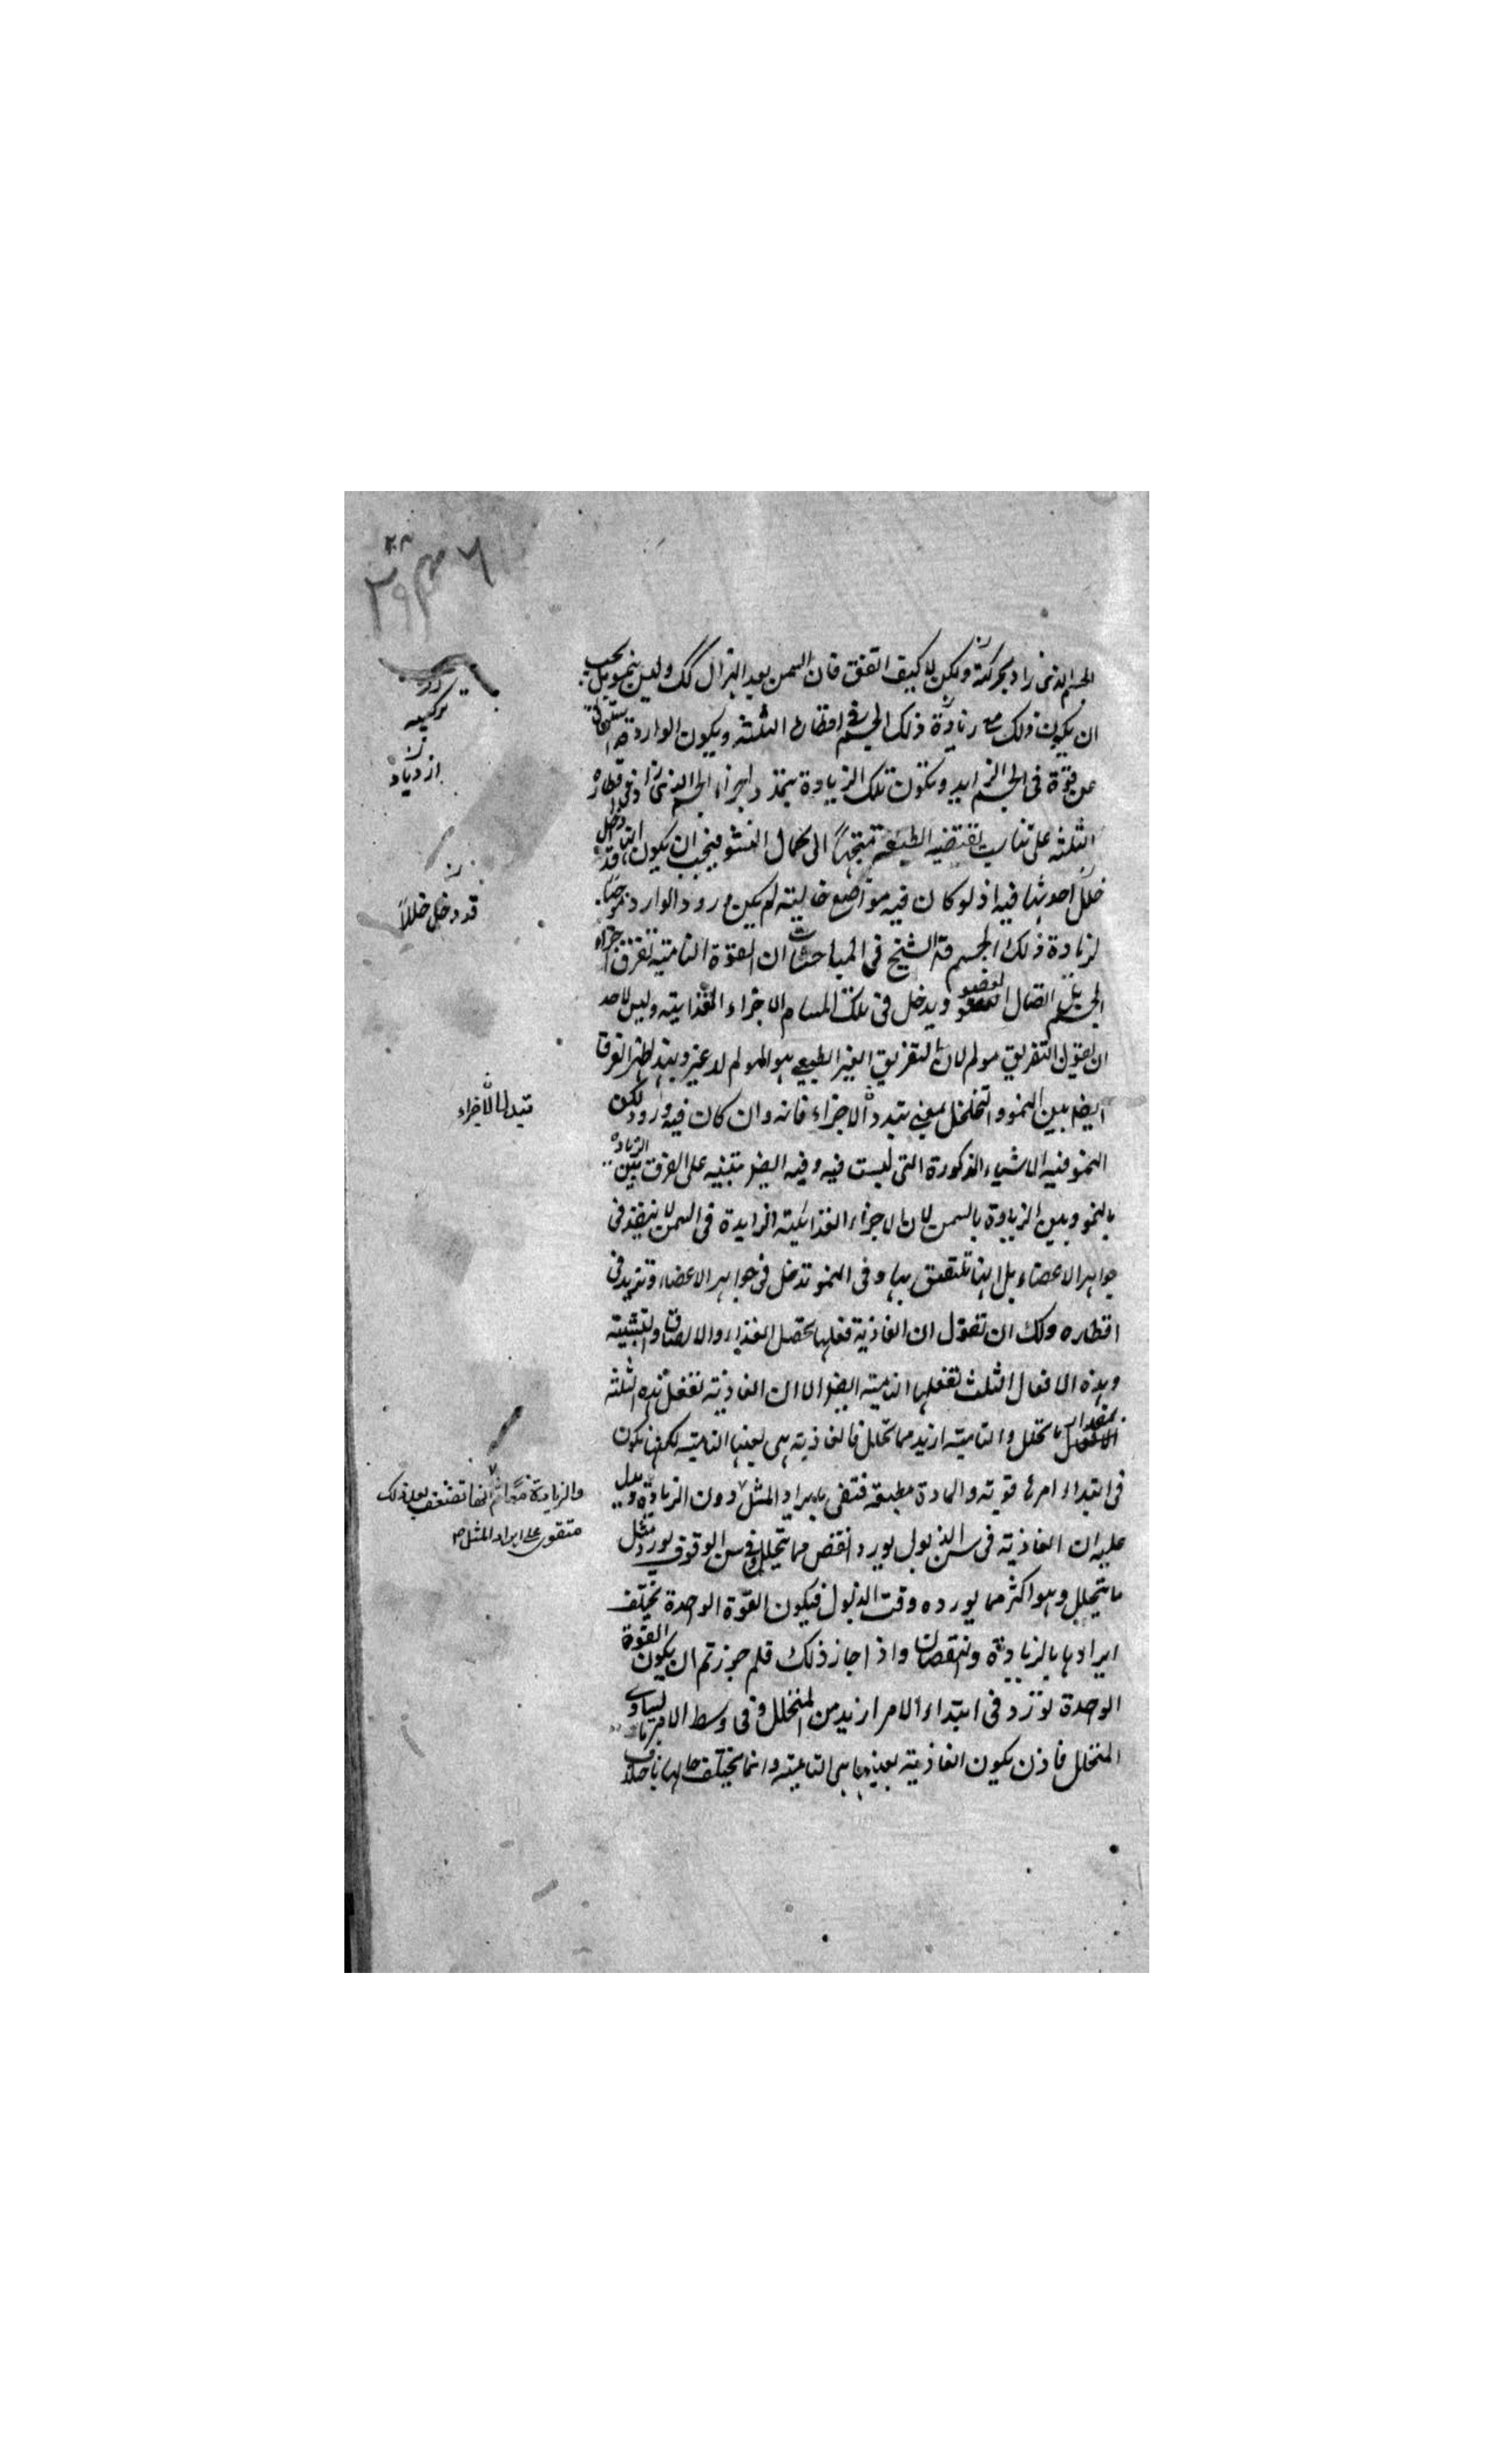 الجسم الذى زاد بحركته ولكن لا كيف اتفق فان السمن بعد الهزال كك وليس بنمو بل يجب
ان يكون ذلك مع زيادة ذلك الجسم فى اقطاره الثلثة ويكون الوارد قد استحال
عن قوة فى الجسم الزايد وتكون تلك الزيادة بتمدد اجزاء الجسم الذى زاد فى اقطاره
الثلثه على تناسب تقتضيه الطبيعة متجها الى كمال النشو فيجب ان يكون النامى قد دخل
خلل احدثها فيه اذ لو كان فيه مواضع خالية لم يكن ورود الوارد موجبا
لزيادة ذلك الجسم قال الشيخ فى المباحثات ان القوة النامية تفرق اجزاء
الجسم بل اتصال العضو ويدخل فى تلك المسام الاجزاء الغذايية وليس لاحد
ان يقول التفريق مولم لان التفريق الغير الطبيعى هو المولم لا غير وبهذا ظهر الفرق
ايضا بين النمو والتخلخل بمعنى تبدد الاجزاء فانه وان كان فيه ورود لكن
النمو فيه الاشياء المذكورة التى ليست فيه وفيه ايضا تنبيه على الفرق بين الزيادة
بالنمو وبين الزيادة بالسمن لان الاجزاء الغذائية الزايدة فى السمن لا تنفذ فى
جواهر الاعضاء بل انها تلتصق بها وفى النمو تدخل فى جواهر الاعضاء وتزيد فى
اقطاره ولك ان تقول ان الغاذية فعلها تحصل الغذاء والالصاق والتشبيه
وهذه الافعال الثلث تفعلها النامية ايضا الا ان الغاذية تفعل هذه الثلثة
بمقدار ما تحلل والنامية ازيد مما تحلل فالغاذية هى بعينها النامية لكنها تكون
فى ابتداء امرها قوية والمادة مطيعة فتفى بايراد المثل دون الزيادة ويدل
عليه ان الغاذية فى سن الذبول يورد انقص مما يتحلل وفى سن الوقوف يورد مثل
ما يتحلل وهو اكثر مما يورده وقت الذبول فيكون القوة الوحدة تختلف
ايرادها بالزيادة والنقصان واذا جاز ذلك فلم جوزتم ان يكون القوة
الوحدة تورد فى ابتداء الامر ازيد من المتحلل وفى وسط الامر ما يساوى
المتحلل فاذن يكون الغاذية بعينها هى النامية وانما يختلف حالها باختلاف
تركيبه
ن
ازدياد
ن
قد دخل خللا
تبدل الاجزاء
والزيادة معا ثم انها تضعف بعد ذلك
فتقوى على ايراد المثل صح